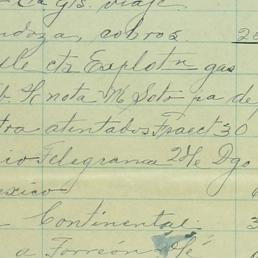 Ca gts. viaje.
ndoza, cobros. 20
lle cta Explotn gas
b/ nota M Soto pa de
tra atentados Fracct 30
io Telegrama 2 Dgo
exico
Continental. 3
a Torreón